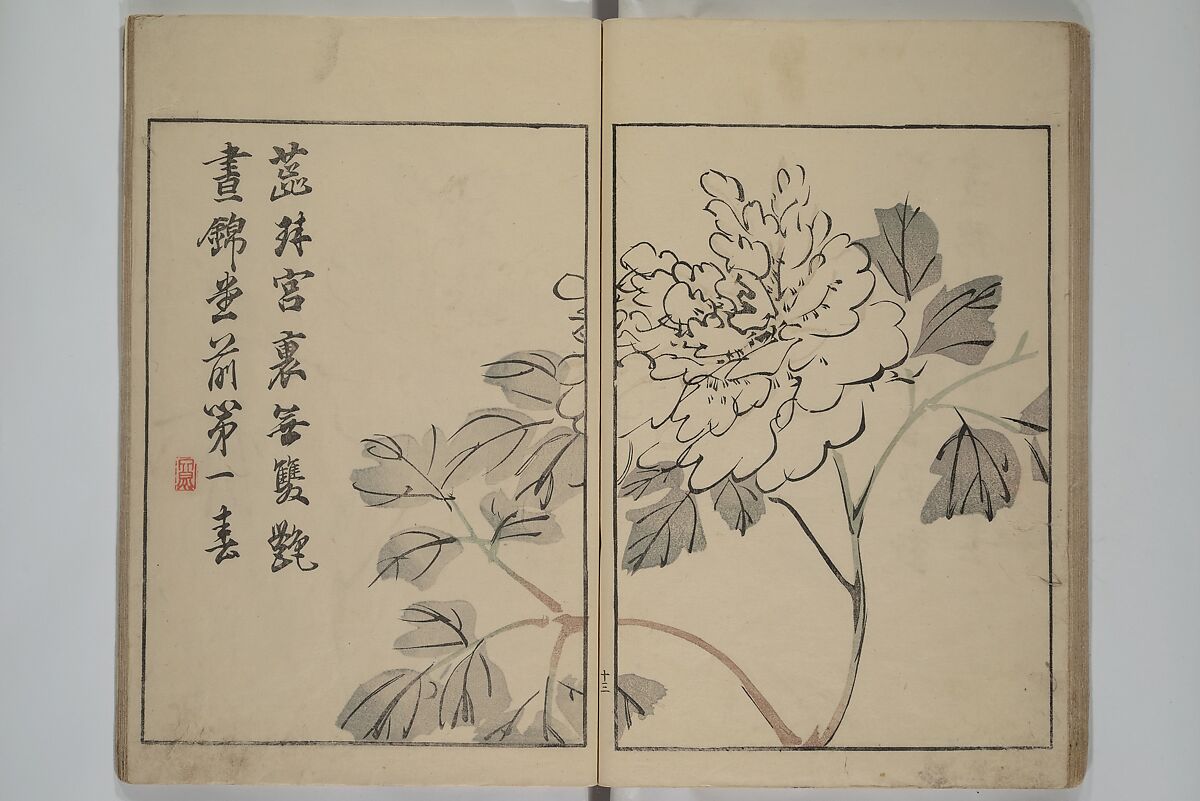 蕋珠宮裏無雙艷
晝錦堂前第一春
十三